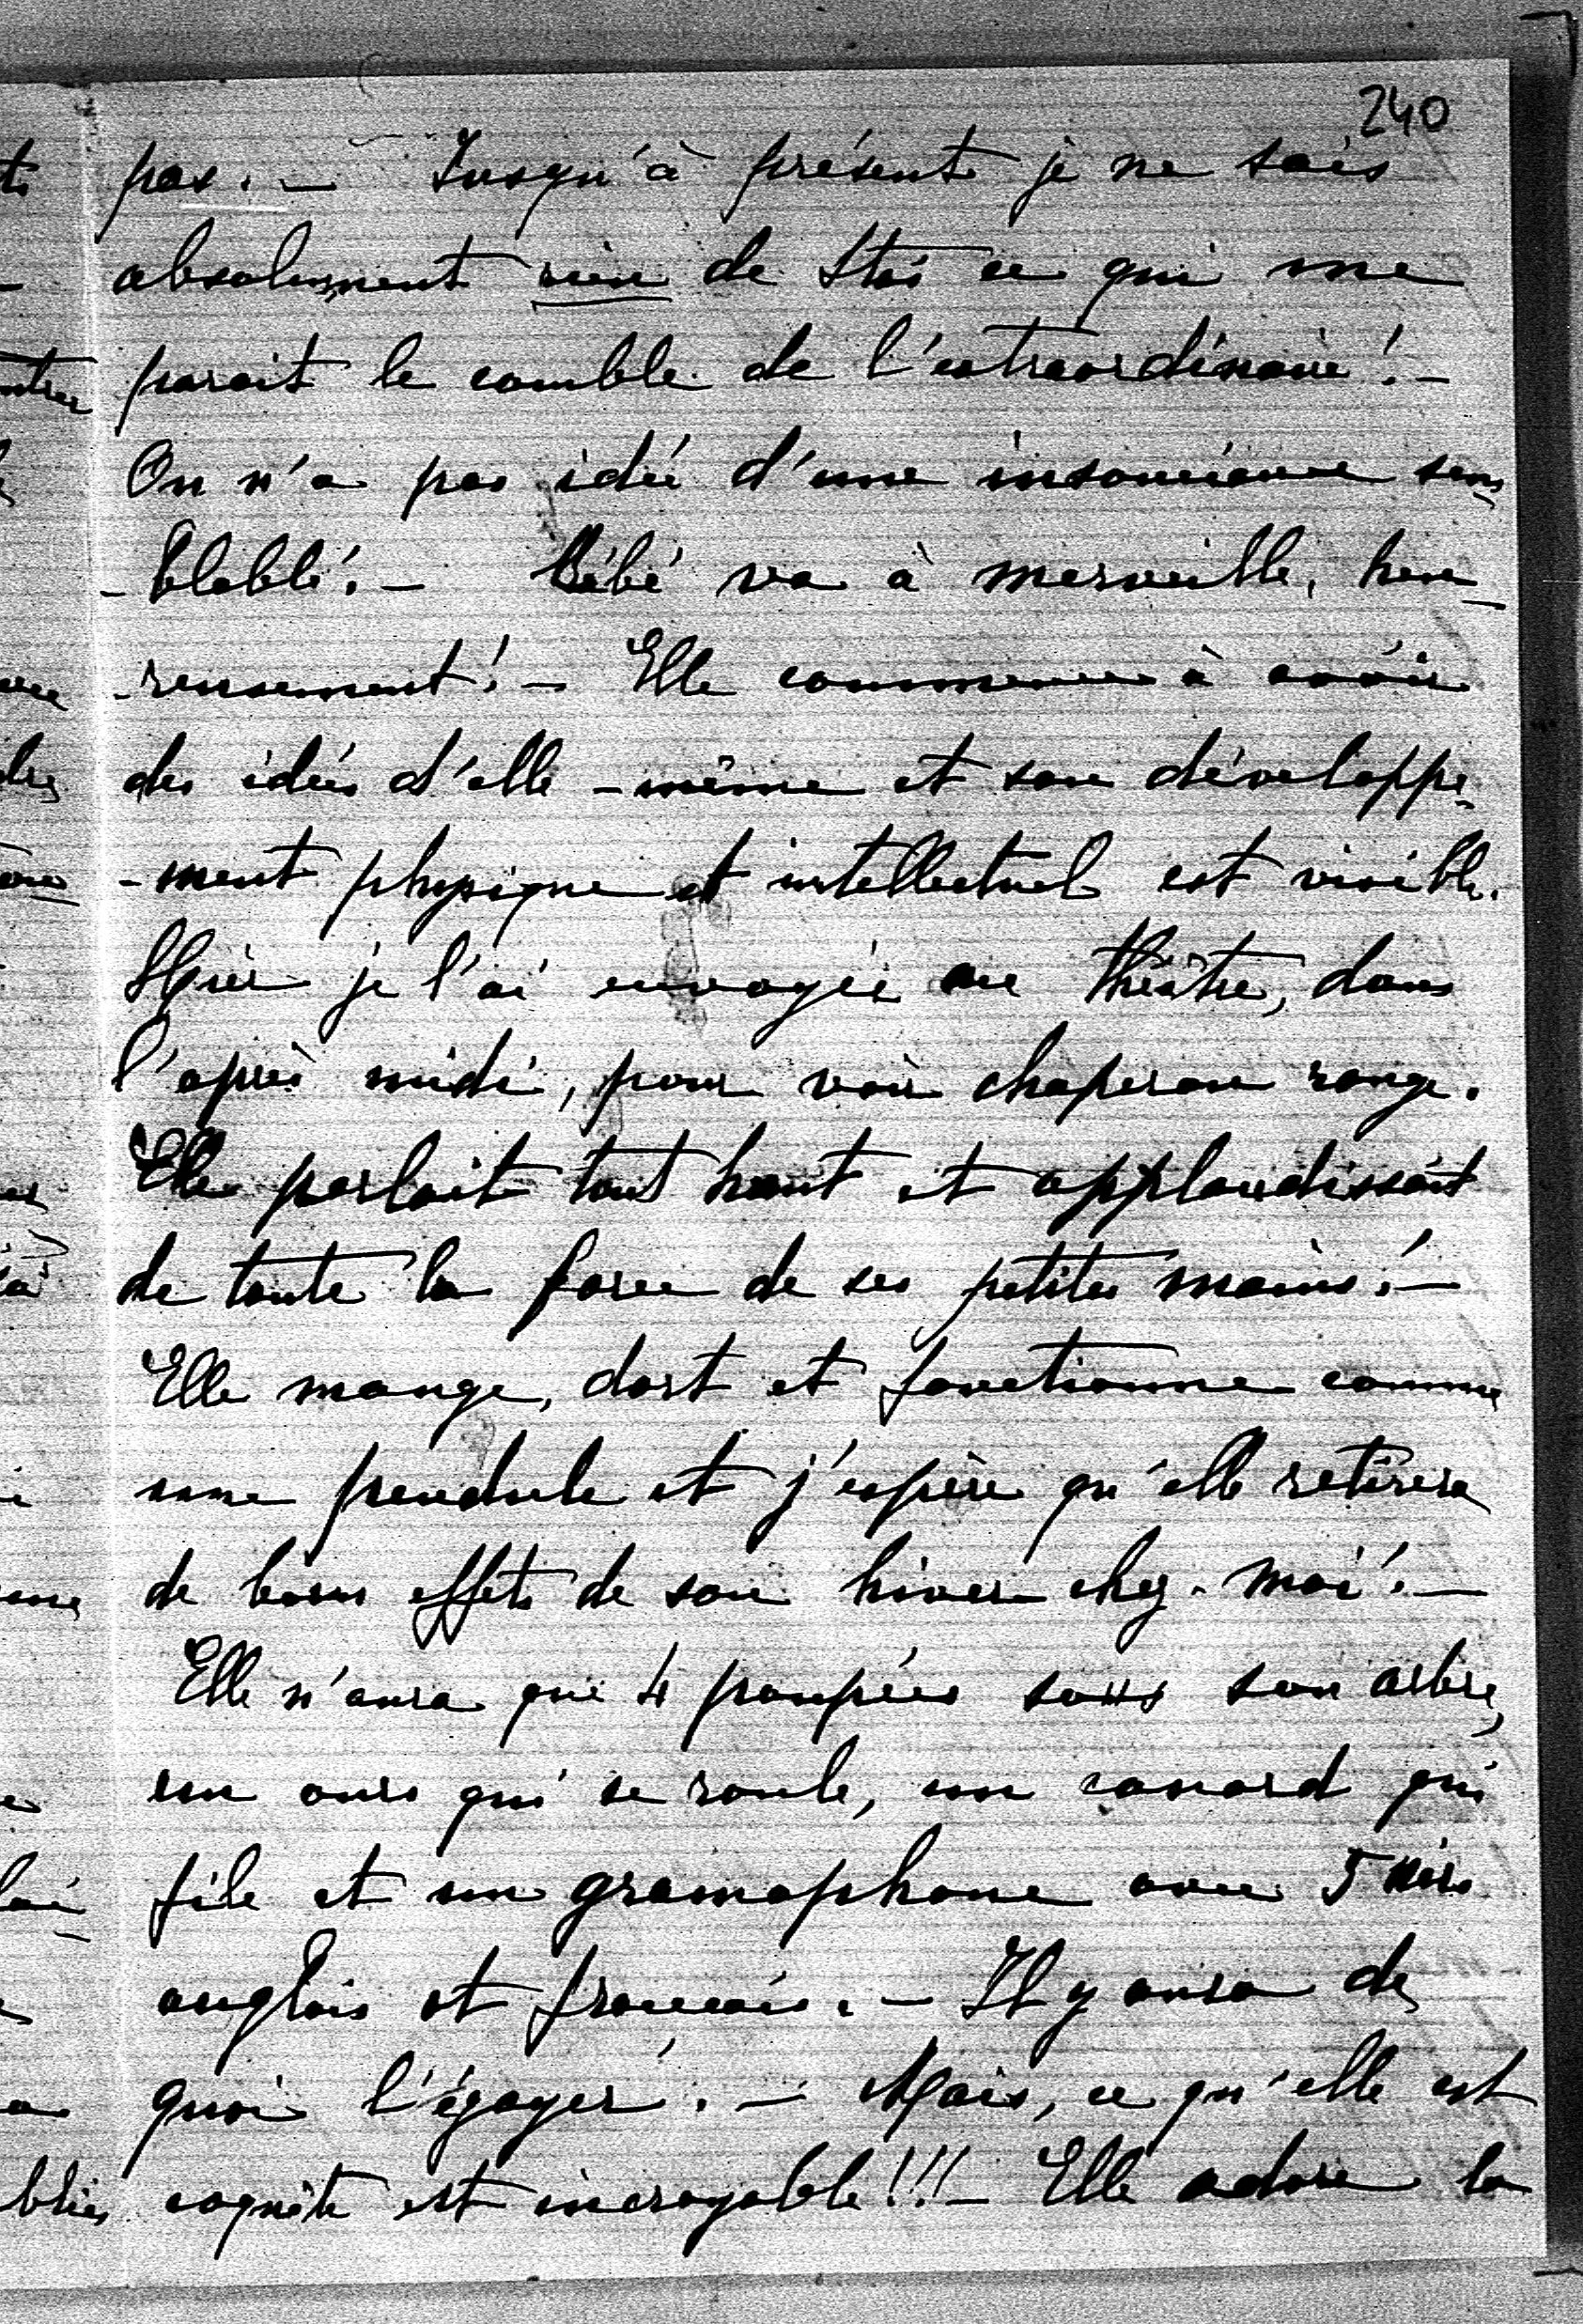 240
pas. — Jusqu'à présent je ne sais
absolument rien de ce qui me
parait le comble de l'extraordinaire! —
On n'a pas idée d'une insouciance sem
- blable. — Bébé va à merveille, heu-
- reusement! — Elle commence à avoir
des idées d'elle-même et son développe-
- ment physique et intellectuel est visible.
Hier je l'ai envoyée au théâtre, dans
l'après midi, pour voir chaperon rouge.
Elle parlait tout haut et applaudissait
de toute la force de ses petites mains! —
Elle mange, dort et fonctionne comme
une pendule et j'espère qu'elle retirera
de bons effets de son hiver chez-moi! —
Elle n'aura que 4 poupées sous son arbre,
un ours qui se roule, un canard qui
file et un gramophone avec 5 airs
anglais et français. — Il y aura de
quoi l'égayer. — Mais, ce qu'elle est
coquète est incroyable!!! — Elle adore la